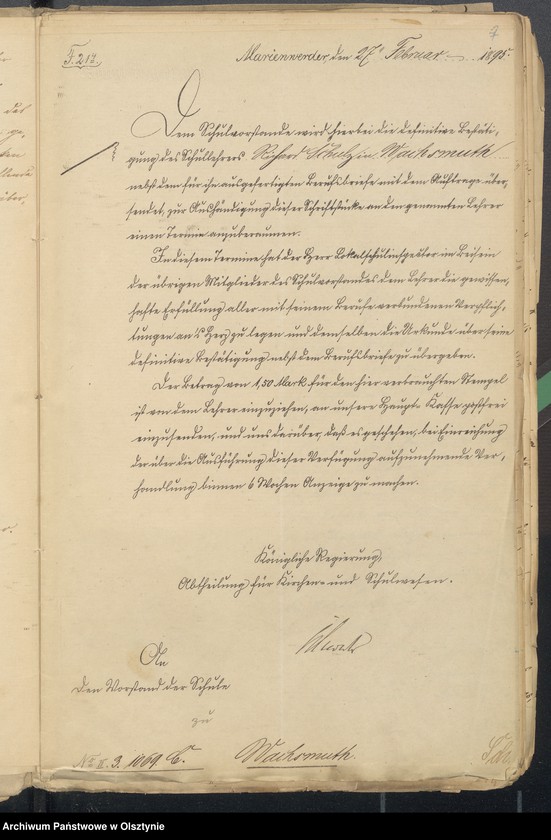 F. 213.
Marienwerder, den 27t Februar 1895.
Dem Schulvorstande wird hierbei die definitive Bestäti,
gung des Schullehrers Richard Schulz in Wachsmuth
nebst dem für ihn ausgefertigten Berufsbriefe mit dem Auftrage über,
sendet, zur Aushändigung dieser Schriftstücke an den genannten Lehrer
einen Termin anzuberaumen.
In diesem Termine hat der Herr Lokalschulinspector im Beisein
der übrigen Mitglieder des Schulvorstandes dem Lehrer die gewissen,
hafte Erfüllung aller mit seinem Berufe verbundenen Verpflich,
tungen an's Herz zu legen und demselben die Urkunde über seine
definitive Bestätigung nebst dem Berufsbriefe zu übergeben.
Der Betrag von 1,50 Mark für den hier verbrauchten Stempel
ist von dem Lehrer einzuziehen, an unsere Haupt-Kasse postfrei
einzusenden, und uns darüber, daß es geschehen, bei Einreichung
der über die Ausführung dieser Verfügung aufzunehmende Ver,
handlung binnen 6 Wochen Anzeige zu machen.
Königliche Regierung,
Abtheilung für Kirchen- und Schulwesen.
An
den Vorstand der Schule
zu
Wachsmuth
No II. 3. 1069. C.
Archiwum Państwowe w Olsztynie